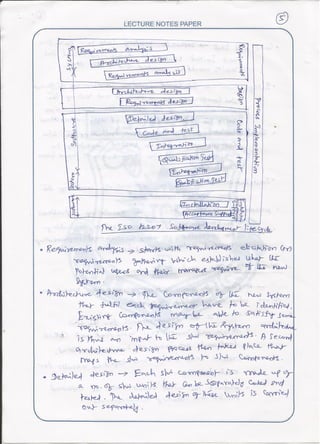 LECTURE NOTES PAPER
5
Requirements Analysis
Architecture design
Requirements analysis
System
Requirements
Architecture design
Requirements design
Design
Process Implementation
Detailed design
Code and test
Integration
Qualification Test
Integration
Qualification Test
Software
Code and test
System
Installation
Acceptance support
The ISO 12207 Software development life cycle
• Requirements analysis → starts with requirements elicitation or
requirements gathering which establishes what the
potential users and their managers require of the new
system.
• Architecture design → The components of the new system
that fulfil each requirement have to be identified.
Existing components may be able to satisfy some
requirements. The design of the system architecture
is thus an input to the s/w requirements. A second
architecture design process then takes place that
maps the s/w requirements to s/w components.
• Detailed design → Each s/w component is made up of
a no. of s/w units that can be separately coded and
tested. The detailed design of these units is carried
out separately.